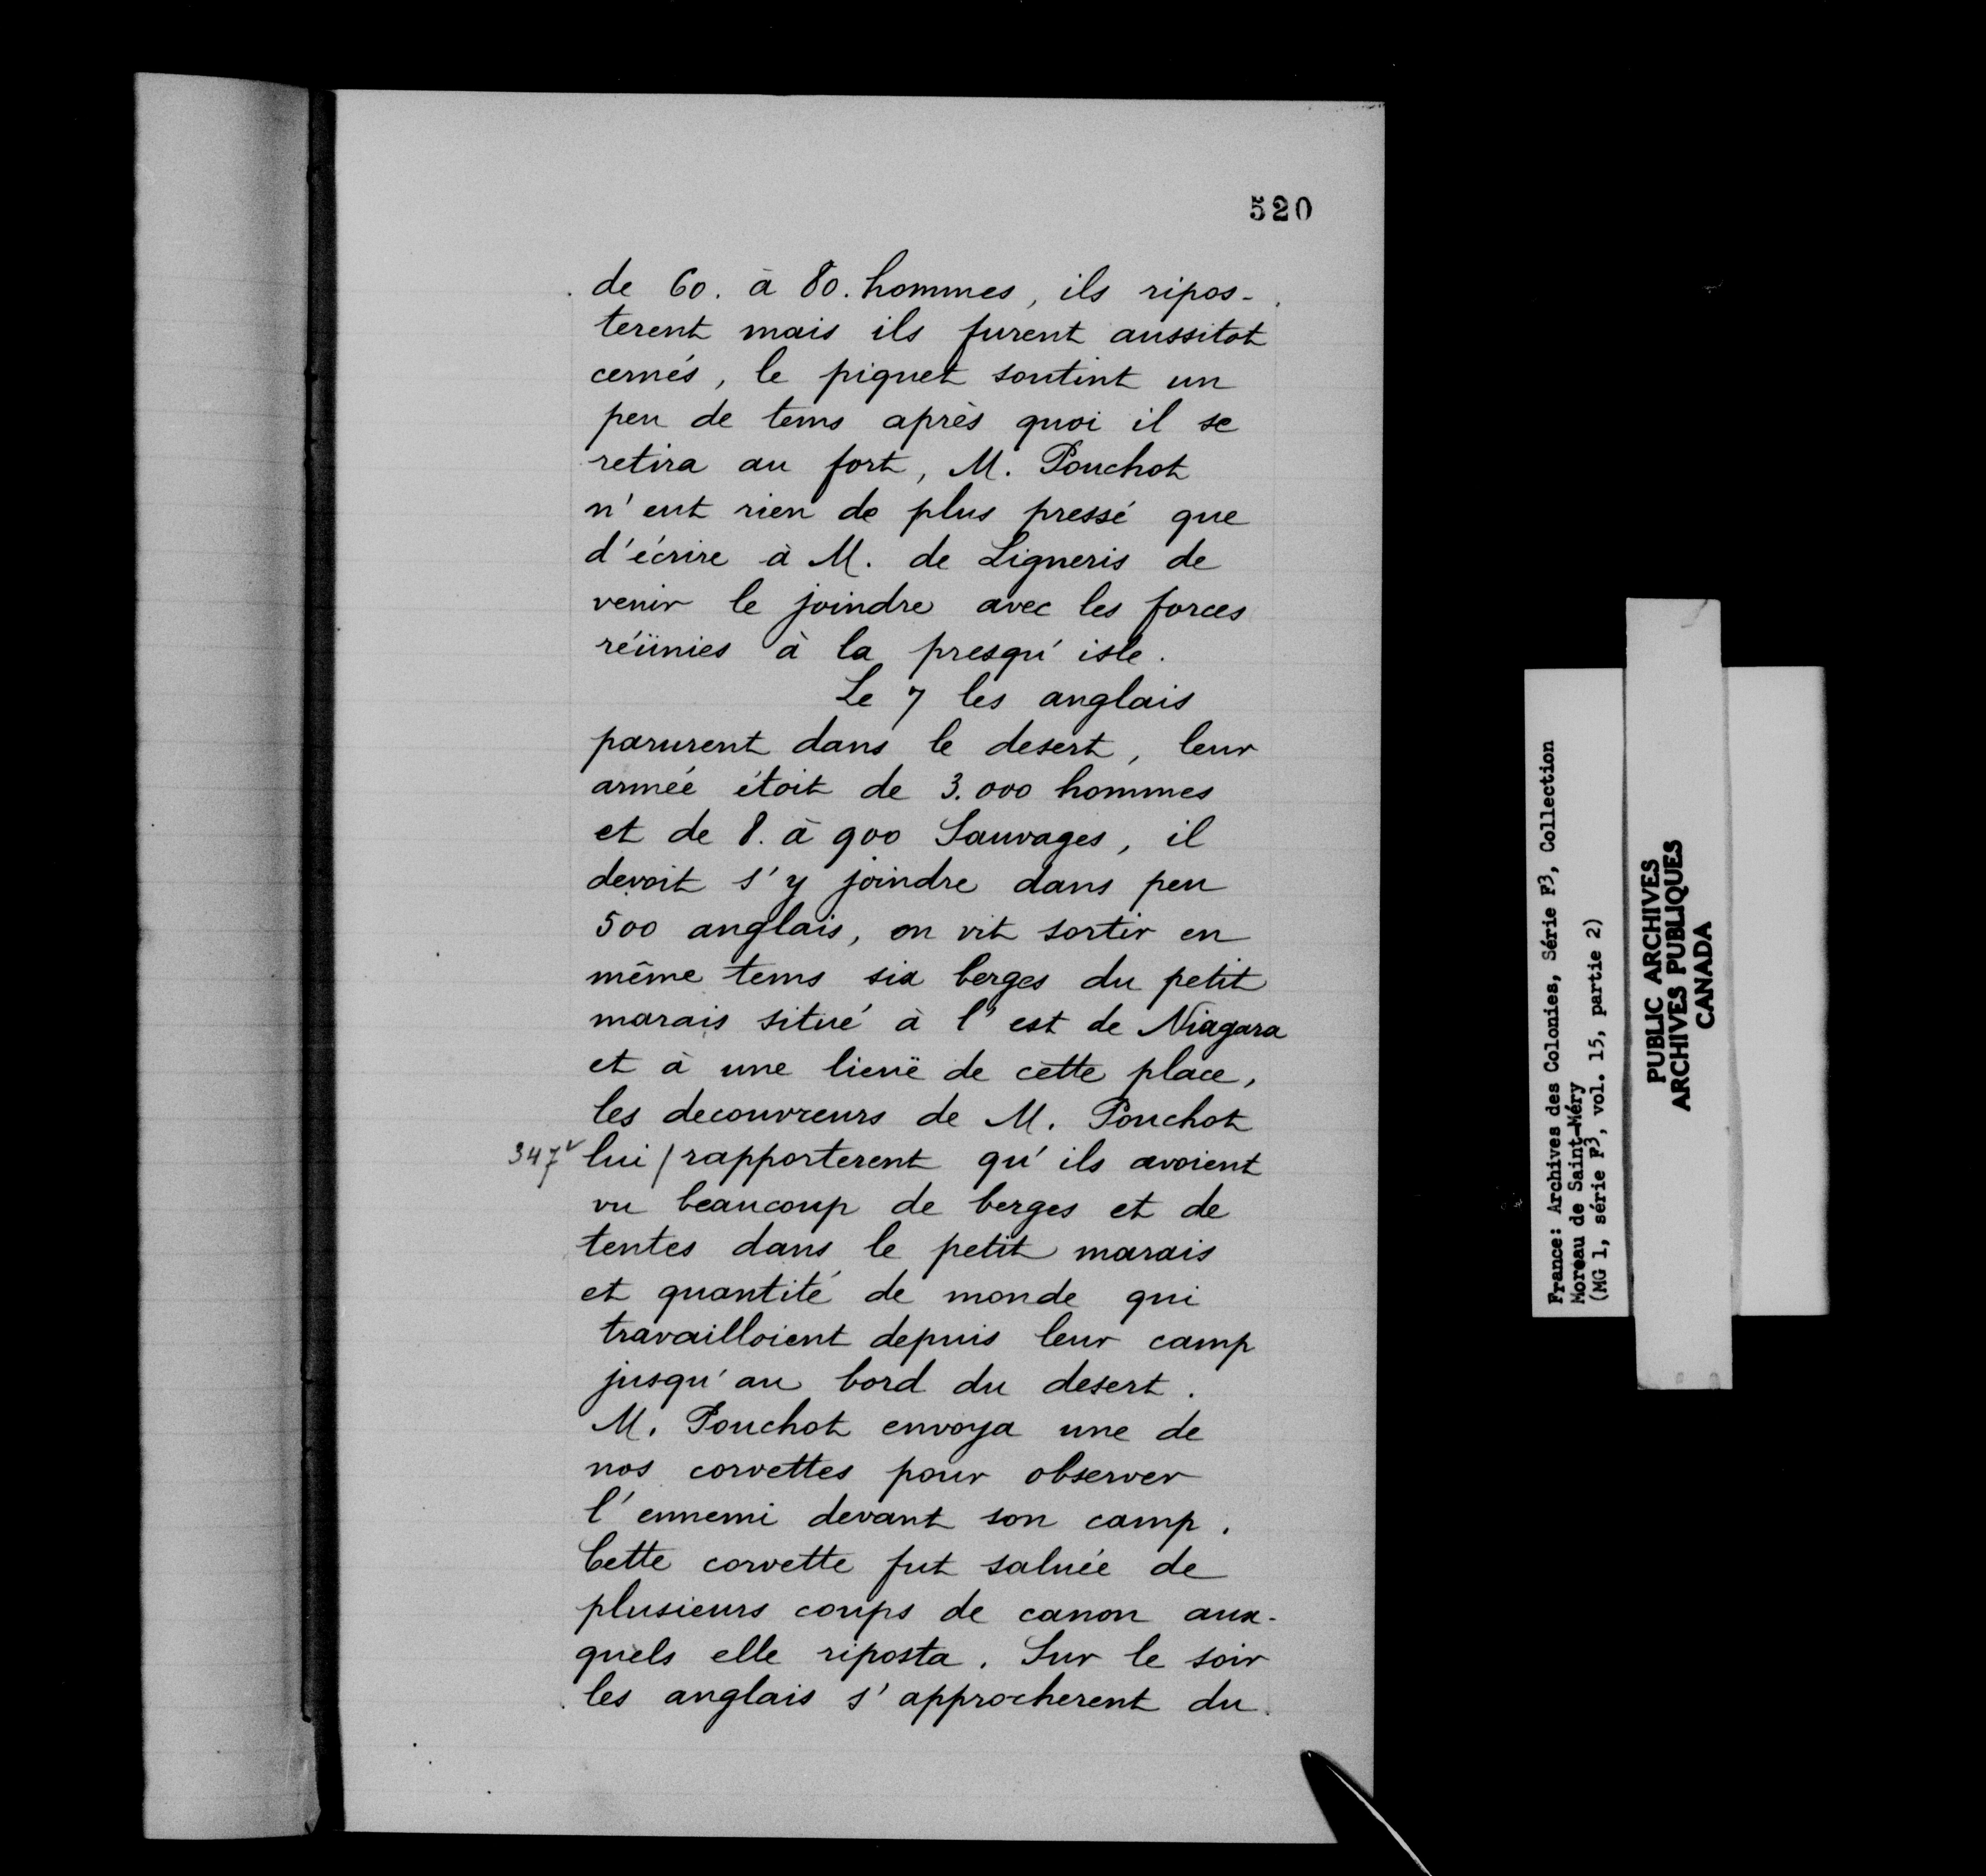 520
de 60. à 80. hommes, ils ripos-
terent mais ils furent aussitot
cernés, le piquet soutint un
peu de tems après quoi il se
retira au fort, M. Pouchot
n'eut rien de plus pressé que
d'écrire à M. de Ligneris de
venir le joindre avec les forces
réünies à la presqu'isle.
Le 7 les anglais
parurent dans le desert, leur
armée étoit de 3.000 hommes
et de 8. à 900 Sauvages, il
devoit s'y joindre dans peu
500 anglais, on vit sortir en
même tems six berges du petit
marais situé à l'est de Niagara
et à une lieuë de cette place,
les decouvreurs de M. Pouchot
347v lui / rapporterent qu'ils avoient
vu beaucoup de berges et de
tentes dans le petit marais
et quantité de monde qui
travailloient depuis leur camp
jusqu'au bord du desert.
M. Pouchot envoya une de
nos corvettes pour observer
l'ennemi devant son camp.
Cette corvette fut saluée de
plusieurs coups de canon aux-
quels elle riposta. Sur le soir
les anglais s'approcherent du
France: Archives des Colonies, Série F3, Collection
Moreau de Saint-Méry
(MG 1, série F3, vol. 15, partie 2)
PUBLIC ARCHIVES
ARCHIVES PUBLIQUES
CANADA